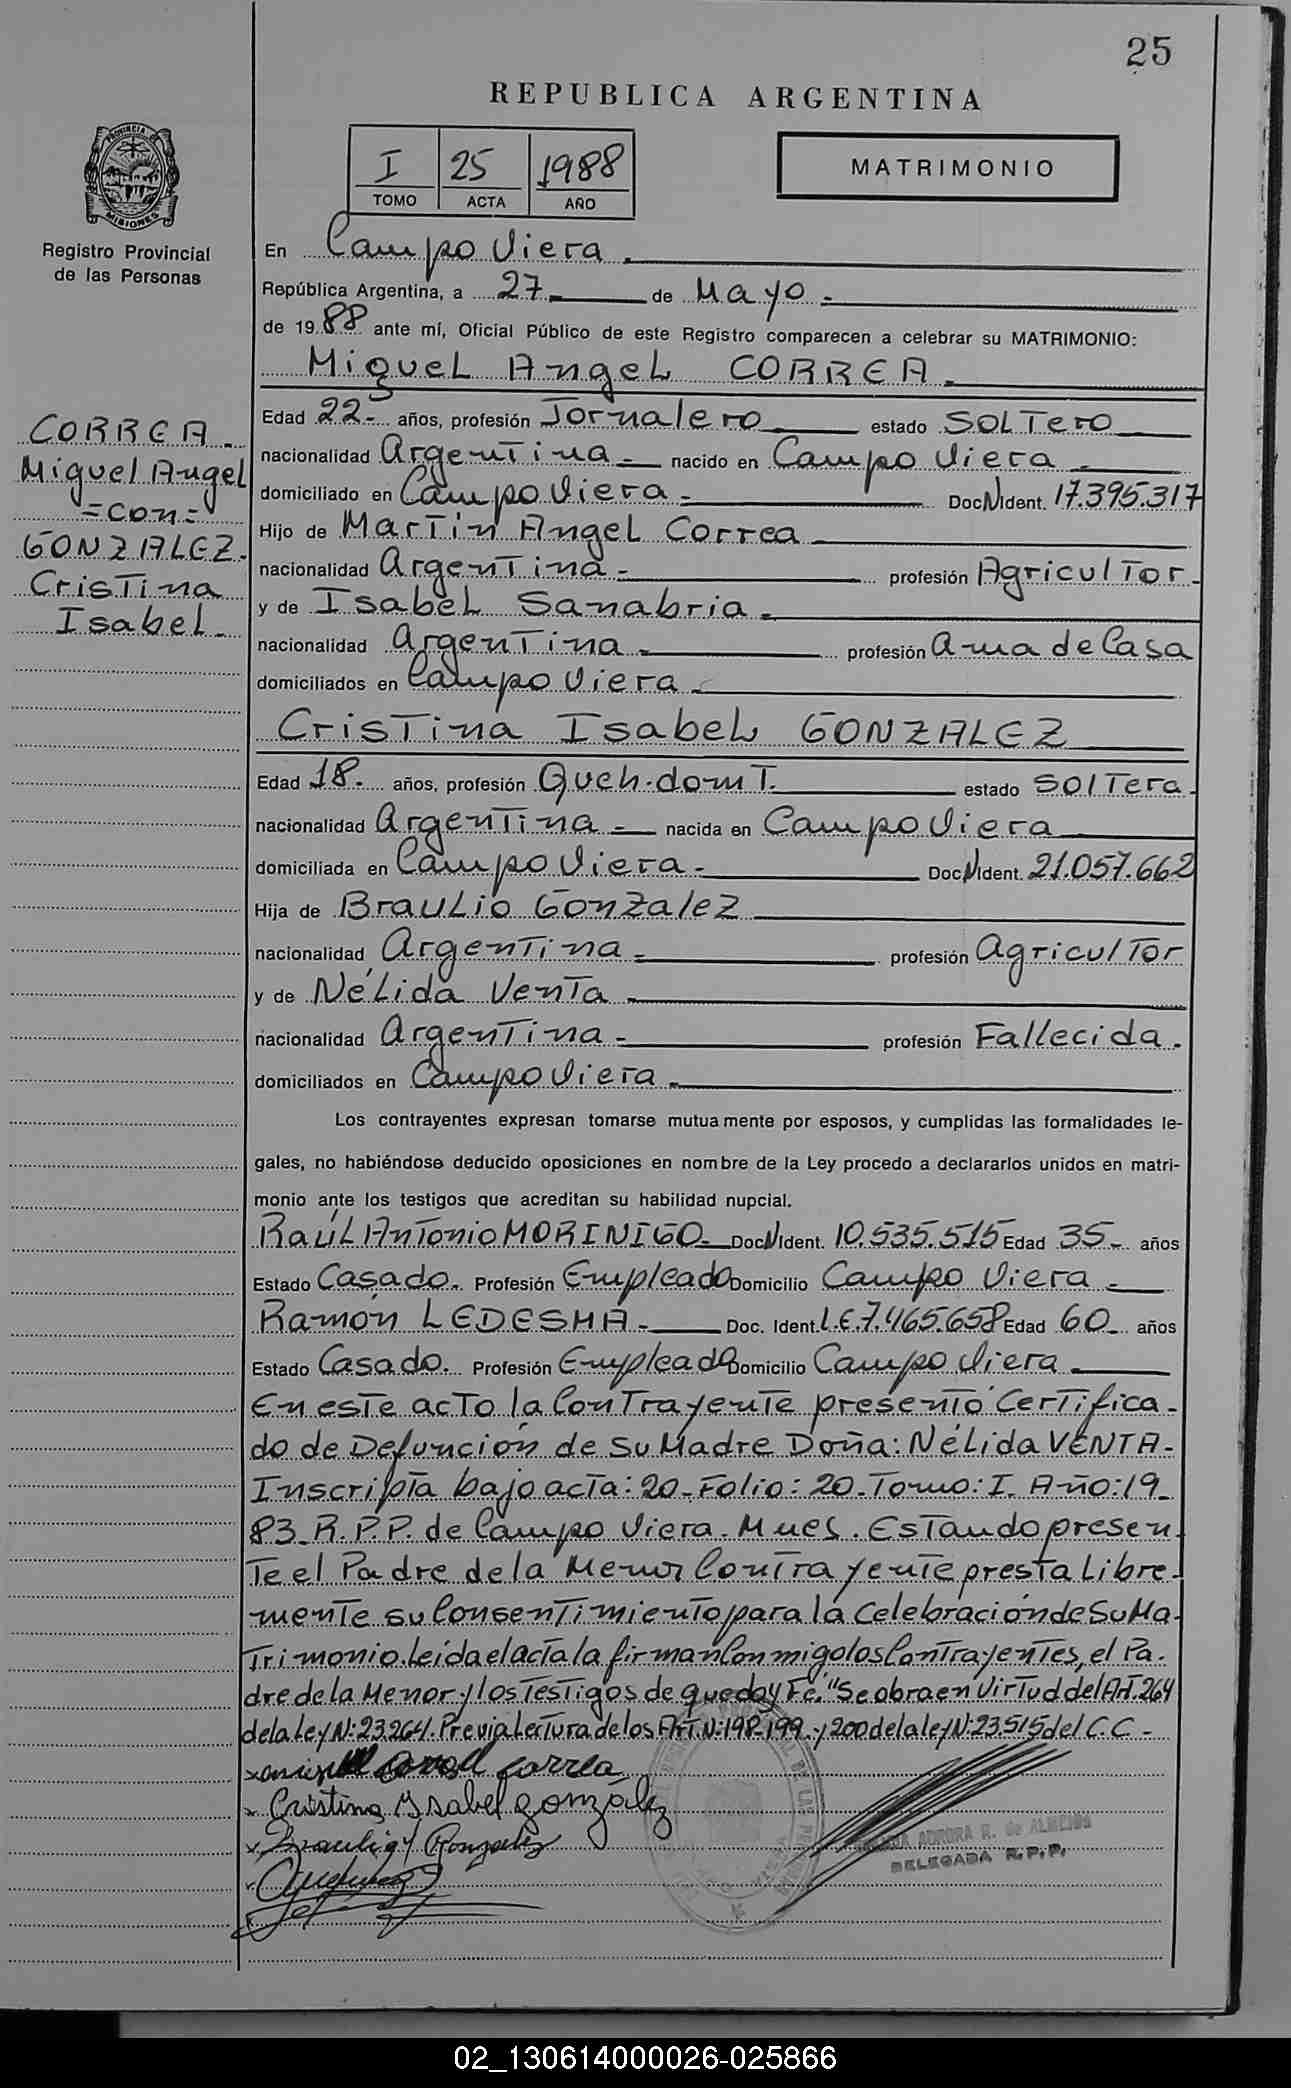 25
REPUBLICA ARGENTINA
PROVINCIA DE
MISIONES
Registro Provincial
de las Personas
I 25 1988
TOMO ACTA AÑO
MATRIMONIO
En Campo Viera.
República Argentina, a 27 de Mayo.
de 1988 ante mí, Oficial Público de este Registro comparecen a celebrar su MATRIMONIO:
Miguel Angel CORREA.
CORREA.
Miguel Angel
=con=
GONZALEZ.
Cristina
Isabel.
Edad 22- años, profesión Jornalero estado Soltero
nacionalidad Argentina nacido en Campo Viera
domiciliado en Campo Viera- Doc N Ident. 17.395.317
Hijo de Martín Angel Correa
nacionalidad Argentina- profesión Agricultor-
y de Isabel Sanabria.
nacionalidad Argentina- profesión Ama de Casa
domiciliados en Campo Viera
Cristina Isabel GONZALEZ
Edad 18. años, profesión Queh.domt. estado Soltera.
nacionalidad Argentina nacida en Campo Viera
domiciliada en Campo Viera- Doc N Ident. 21.057.662
Hija de Braulio Gonzalez
nacionalidad Argentina profesión Agricultor
y de Nélida Venta
nacionalidad Argentina- profesión Fallecida.
domiciliados en Campo Viera
Los contrayentes expresan tomarse mutuamente por esposos, y cumplidas las formalidades le-
gales, no habiéndose deducido oposiciones en nombre de la Ley procedo a declararlos unidos en matri-
monio ante los testigos que acreditan su habilidad nupcial.
Raúl Antonio MORINIGO. Doc N Ident. 10.535.515 Edad 35- años
Estado Casado. Profesión Empleado Domicilio Campo Viera
Ramón LEDESMA- Doc. Ident. L.E.7.465.658 Edad 60 años
Estado Casado. Profesión Empleado Domicilio Campo Viera
En este acto la Contrayente presentó Certifica-
do de Defunción de su Madre Doña: Nélida VENTA-
Inscripta bajo acta: 20-Folio: 20-Tomo: I. Año: 19-
83-R.P.P. de Campo Viera. Mnes. Estando presen-
te el Padre de la Menor Contrayente presta Libre-
mente su Consentimiento para la Celebración de Su Ma-
trimonio. Leída el acta la firman Conmigo los Contrayentes, el Pa-
dre de la Menor y los Testigos de que doy Fé. "Se obra en Virtud del Art. 264
de la Ley N: 23.264. Previa Lectura de los Art. N: 198-199-y 200 de la ley N: 23.515 del C.C-
Correa
Cristina Ysabel gonzález
Braulio Gonzalez
AURORA R. de ALMEIDA
DELEGADA R.P.P.
02_130614000026-025866